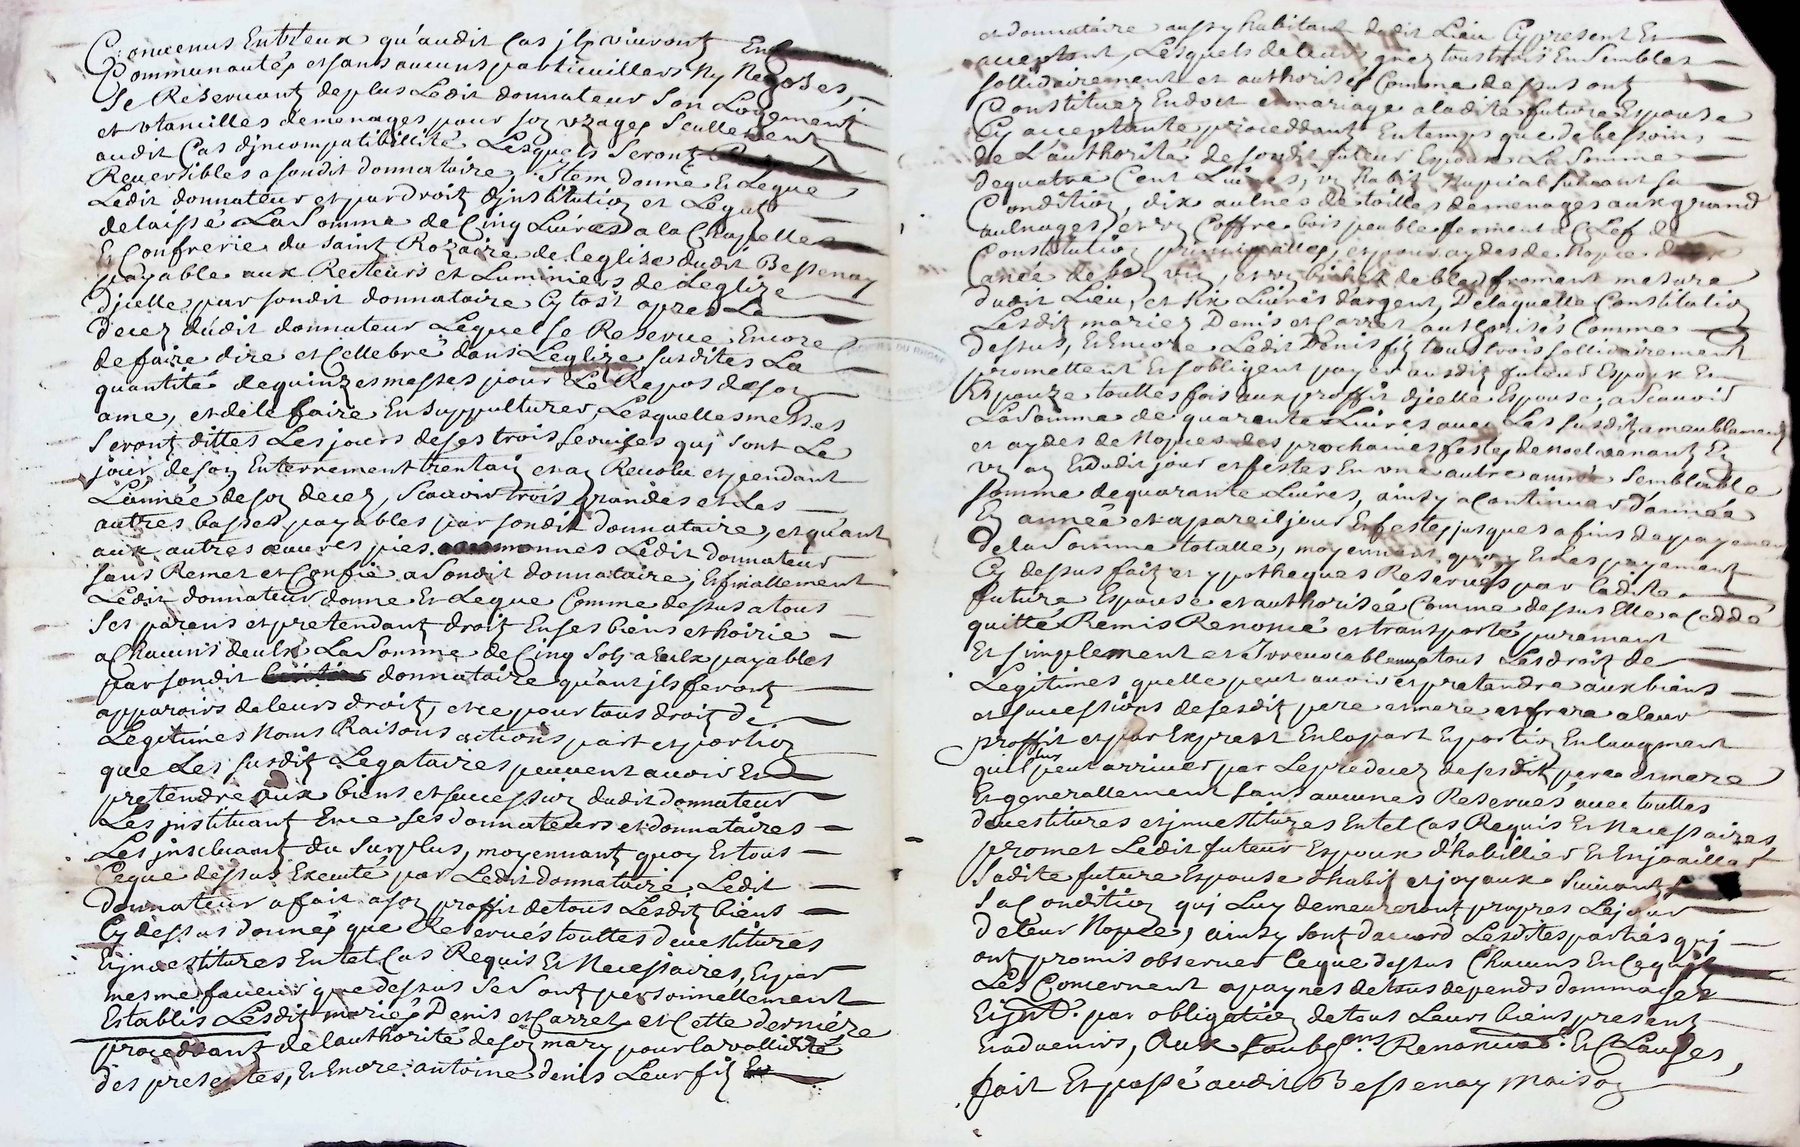 Convenus Entreux qu'audit Cas jls vivront En
Communautés et sans aucuns particuilliers Ny Negoses,
se Reservant de plus Ledit donnateur son Logement
et utancilles de menages pour son uzages seullement
audit Cas d'jncompatibillité Lesquels seront
Reversibles a sondit donnataire, Item donne Et Legue
Ledit donnateur et par droit d'jnstitution et Legat
delaissé La Somme de Cinq Livres a la Chapelle
Et Confrerie du saint Rozaire de leglise dudit Bessenay
payable aux Recteurs et Luminiers de Leglize
d'jcelle par sondit donnataire Cy tost apres Le
decez dudit donnateur Lequel se Reserve Encore
de faire dire et Cellebré dans Leglize susdites La
quantité de quinze messes pour Le Repos de son
ame, et de le faire Ensuppulturer, Lesquelles messes
seront dittes Les jours de ses trois services qui sont Le
jour de son Enterrement trentain et an Revolu et pendant
L'année de son decez, scavoir trois grandes et Les
autres basses payables par sondit donnataire, et quant
aux autres œuvres pies aumonnes Ledit donnateur
sans Remet et Confie a sondit donnataire, Et finallement
Ledit donnateur donne Et Legue Comme dessus a tous
ses parens et pretendant droit En ses biens et hoirie
a Chacuns deulx La Somme de Cinq sols a Eulx payables
par sondit donnataire quant jls feront
apparoirs de leurs droit, et ce pour tous droit de
Legitimes Noms Raisons actions part et portion
que Les susdit Legataires peuvent avoir Et
pretendre aux biens et succession dudit donnateur
Les jnstituant En ce ses donnateurs et donnataires
Les jnscluant du surplus, moyennant quoy Et tous
Ce que dessus Executé par Ledit donnataire Ledit
donnateur a fait a son proffit de tous Lesdit biens
Cy dessus donnés que Reservés touttes devestitures
Et jnvestitures En tel Cas Requis Et Necessaires, Et par
mesme faveur que dessus se sont personnellement
Establis Lesdit mariés Denis et Carret et Cette derniere
proceddant de l'authorité de son mary pour la vallidité
des presentes, Et Encore antoine denis Leur fils
et donnataire aussy habitant dudit Lieu Cy present Et
acceptant, Lesquels de leurs grez tous trois Ensembles
sollidairement et authorisés Comme dessus ont
Constituez En dot et mariage a ladite future Espouse
Cy acceptante proceddant En temps que de besoin,
de L'authorité de sondit futur Espoux La Somme
de quatre Cent Livres, un habit Nupcial suivant sa
Condition, dix aulnes de toilles de menages aux grand
aulnages, et un Coffre bois peuble fermant a Clef de
Constitution principalle, et pour aydes de Nopce
anée de bon vin, et un bichet de bled froment mesure
dudit Lieu, et six Livres d'argent, De laquelle Constitution
Lesdit mariez Denis et Carret authorisés Comme
dessus, Et Encore Ledit Denis fils tous trois sollidairement
promettent Et s'obligent payer ausdit futurs Espoux En
Espouze touttes fois aux proffit d'jcelle Espouse, a scavoir
La Somme de quarante Livres avec Les susdit ameublement
et aydes de Nopces des prochaines festes de noel venant En
un an Et dudit jour et festes En une autre année Semblable
somme de quarante Livres, ainsy a Continuer d'année
En année et a pareil jour Et festes jusques a fins de payement
de la Somme totalle, moyennant quoy Et Les payement
Cy dessus fait et ypotheques Reservés par ladite
future Espouse et authorisée Comme dessus Elle a Ceddé
quitté Remis Renoncé et transporté purement
Et simplement et Irrevocablement tous Les droit de
Legitimes quelle peut avoir et pretendre aux biens
et successions de sesdit pere et mere et frere a leur
proffit et par Exprest En la part Et portion En laugment
qui leur peut arriver par Le predecez de sesdit pere et mere
Et generallement sans aucunes Reserves avec touttes
devestitures et jnvestitures En tel Cas Requis Et Necessaires
promet Ledit futeur Espoux d'habillier Et Enjoailler
sadite future Espouse d'habit et joyaux suivant
sa Condition qui Luy demeureront propres Le jour
de leur Nopce, ainsy sont d'accord Lesdites parties qui
ont promis observer Ce que dessus Chacuns En Ce qui
Les Concernent a paynes de tous depends dommages
Et jnt. par obligation de tous Leurs biens present
Et advenirs, Aux soubons Renoncias. Et Clauses,
fait Et passé audit Bessenay maison